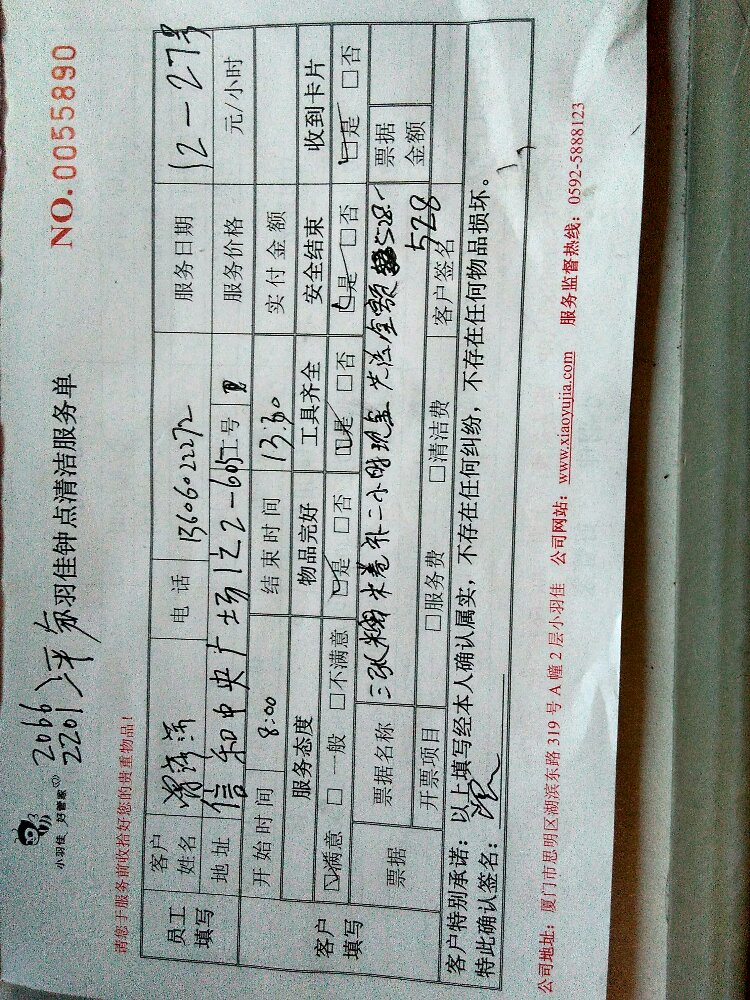 小羽佳 好管家
2066
2201
小羽佳钟点清洁服务单
NO.0055890
请您于服务前收拾好您的贵重物品！
员工填写
客户姓名
电 话 13606022272
服务日期 12-27号
地址 信和中央广场 2-605
工号
服务价格 元/小时
客户填写
开 始 时 间 8:00
结 束 时 间 13:30
实 付 金 额
服务态度 物品完好 工具齐全 安全结束 收到卡片
☑满意 □ 一般 □不满意 ☑是 □否 ☑是 □否 ☑是 □否 ☑是 □否
票据
票据名称 三张 券 补二小时现金 金额 528.-
票据金额
开票项目 □服务费 □清洁费
客户签名 528
客户特别承诺：以上填写经本人确认属实，不存在任何纠纷，不存在任何物品损坏。
特此确认签名：
公司地址：厦门市思明区湖滨东路 319 号 A 幢 2 层小羽佳 公司网站：www.xiaoyujia.com 服务监督热线：0592-5888123